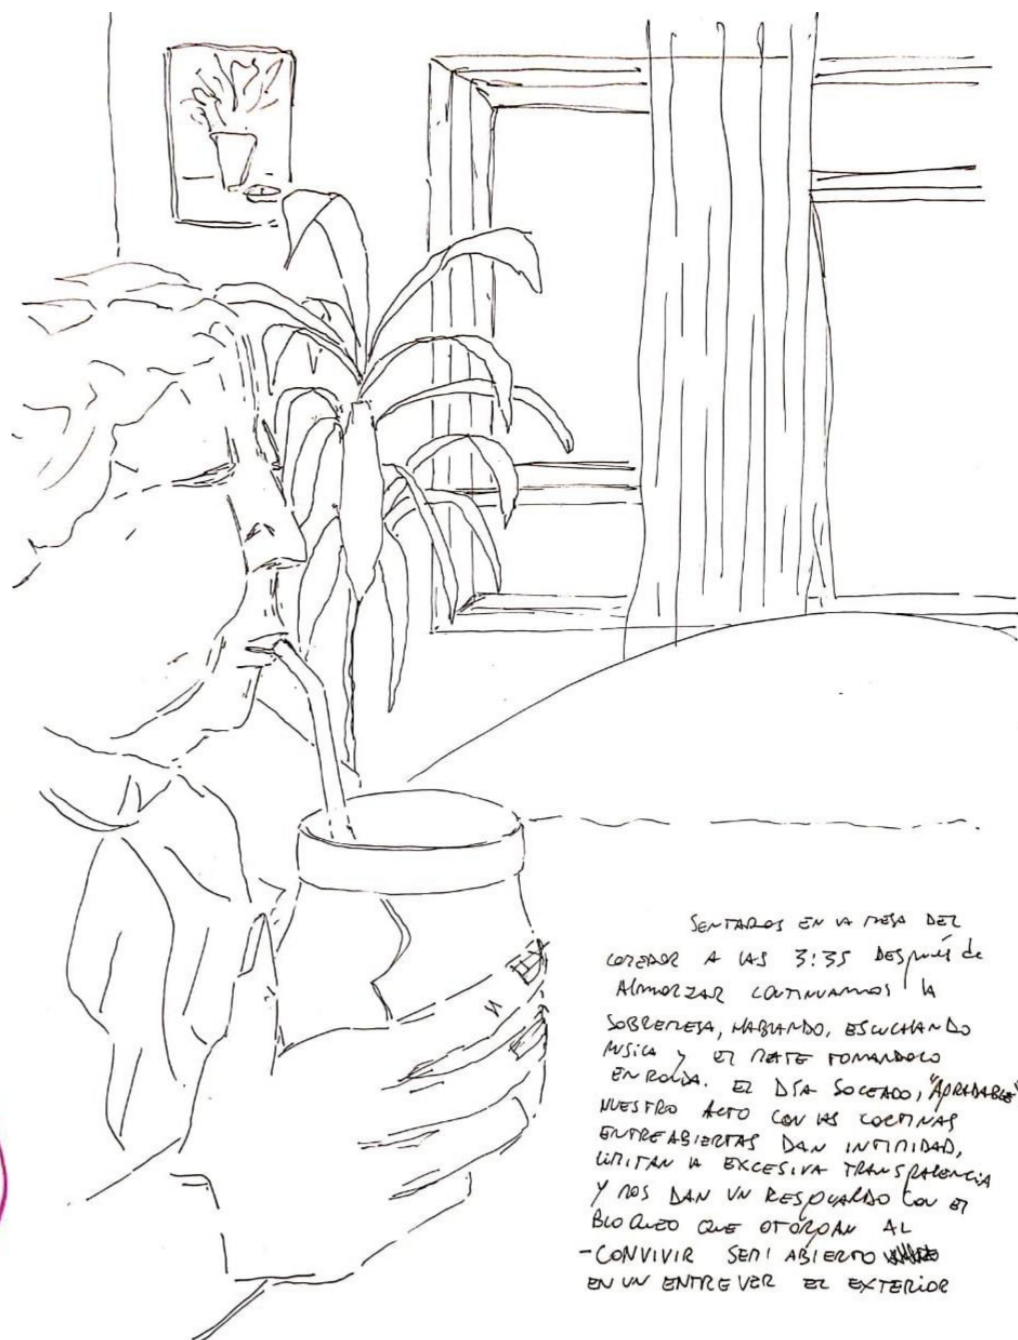 SENTADOS EN LA MESA DEL
COMEDOR A LAS 3:35 DESpués de
AlMORZAR CONTINUAMOS LA
SOBREMESA, HABLANDO, ESCUCHANDO
MUSICA y EL MATE TOMANDOLO
EN RONDA. EL DÍA SOLEADO, "AGRADABLE"
NUESTRO ACTO CON LAS CORTINAS
ENTREABIERTAS DAN INTIMIDAD,
LIMITAN LA EXCESIVA TRANSPARENCIA
Y NOS DAN UN RESGUARDO CON EL
BLOQUEO QUE OTÓRGAN AL
-CONVIVIR SEMI ABIERTO
EN UN ENTREVER EL EXTERIOR